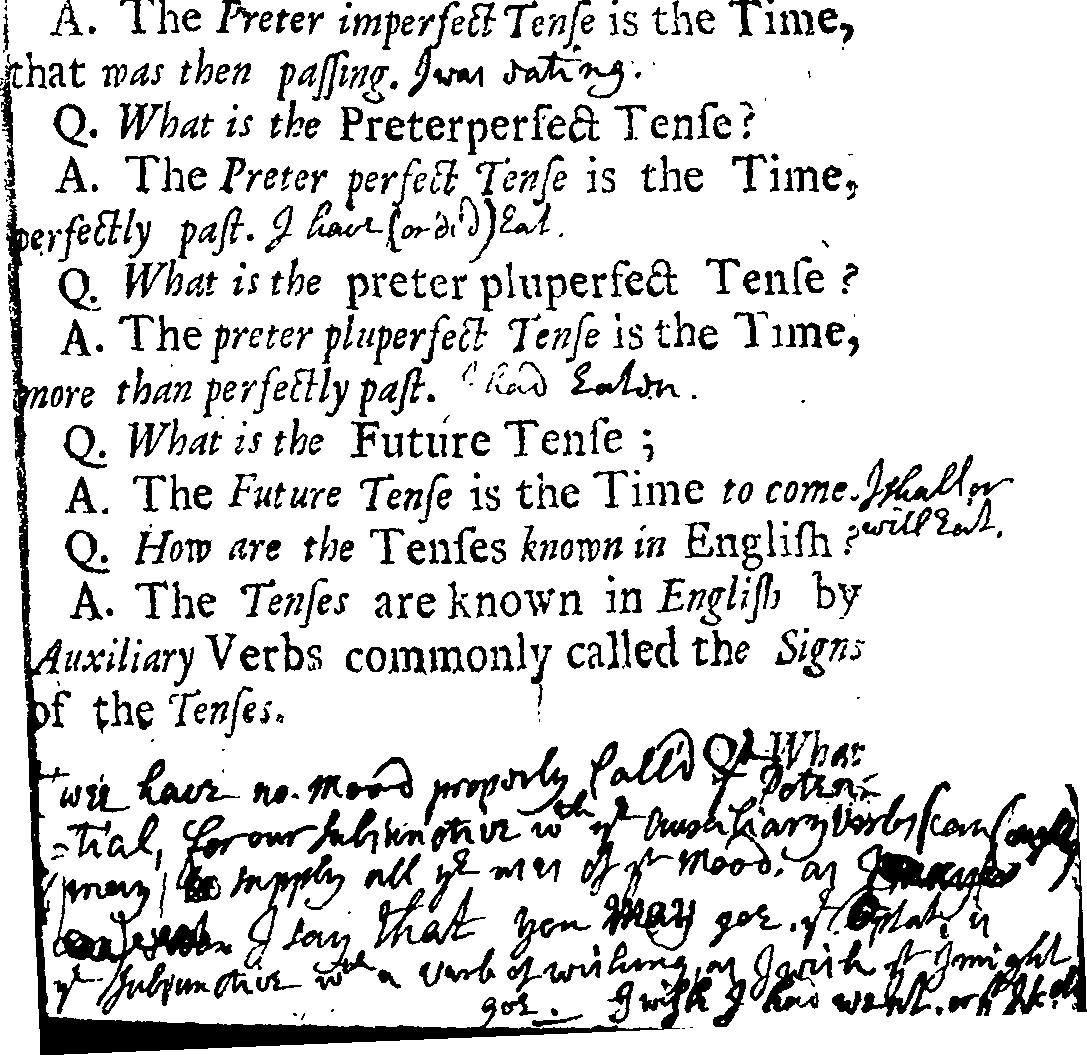 A. The Preter imperfect Tenſe is the Time,
that was then paſſing. I was eating.
Q. What is the Preterperfect Tenſe?
A. The Preter perfect Tenſe is the Time,
perfectly paſt. I have (or did) Eat.
Q. What is the preter pluperfect Tenſe?
A. The preter pluperfect Tenſe is the Time,
more than perfectly paſt. I had Eaten.
Q. What is the Future Tenſe;
A. The Future Tenſe is the Time to come. I shall or
will Eat.
Q. How are the Tenſes known in Engliſh?
A. The Tenſes are known in Engliſh by
Auxiliary Verbs commonly called the Signs
of the Tenſes.
Q. What
wee have no Mood properly Call'd yᵉ Poten
=tial, for our Subiunctive wᵗʰ yᵉ Auxiliary Verbs (can (ought
(may) supply all yᵉ uses of yᵗ Mood. as I
I say that you May goe. yᵉ is
yᵉ Subjunctive wᵗʰ a Verb of wishing, as I wish yᵗ I might
goe. I wish I had went.